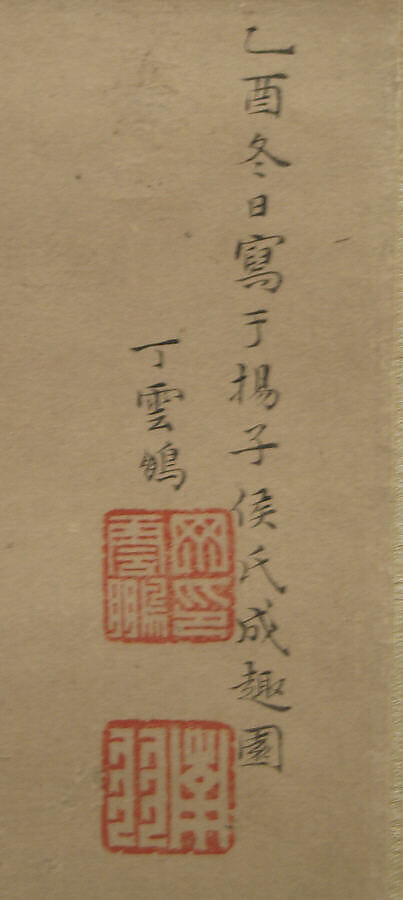 乙酉冬日寫于揚子侯氏成趣園
丁雲鵬
南羽